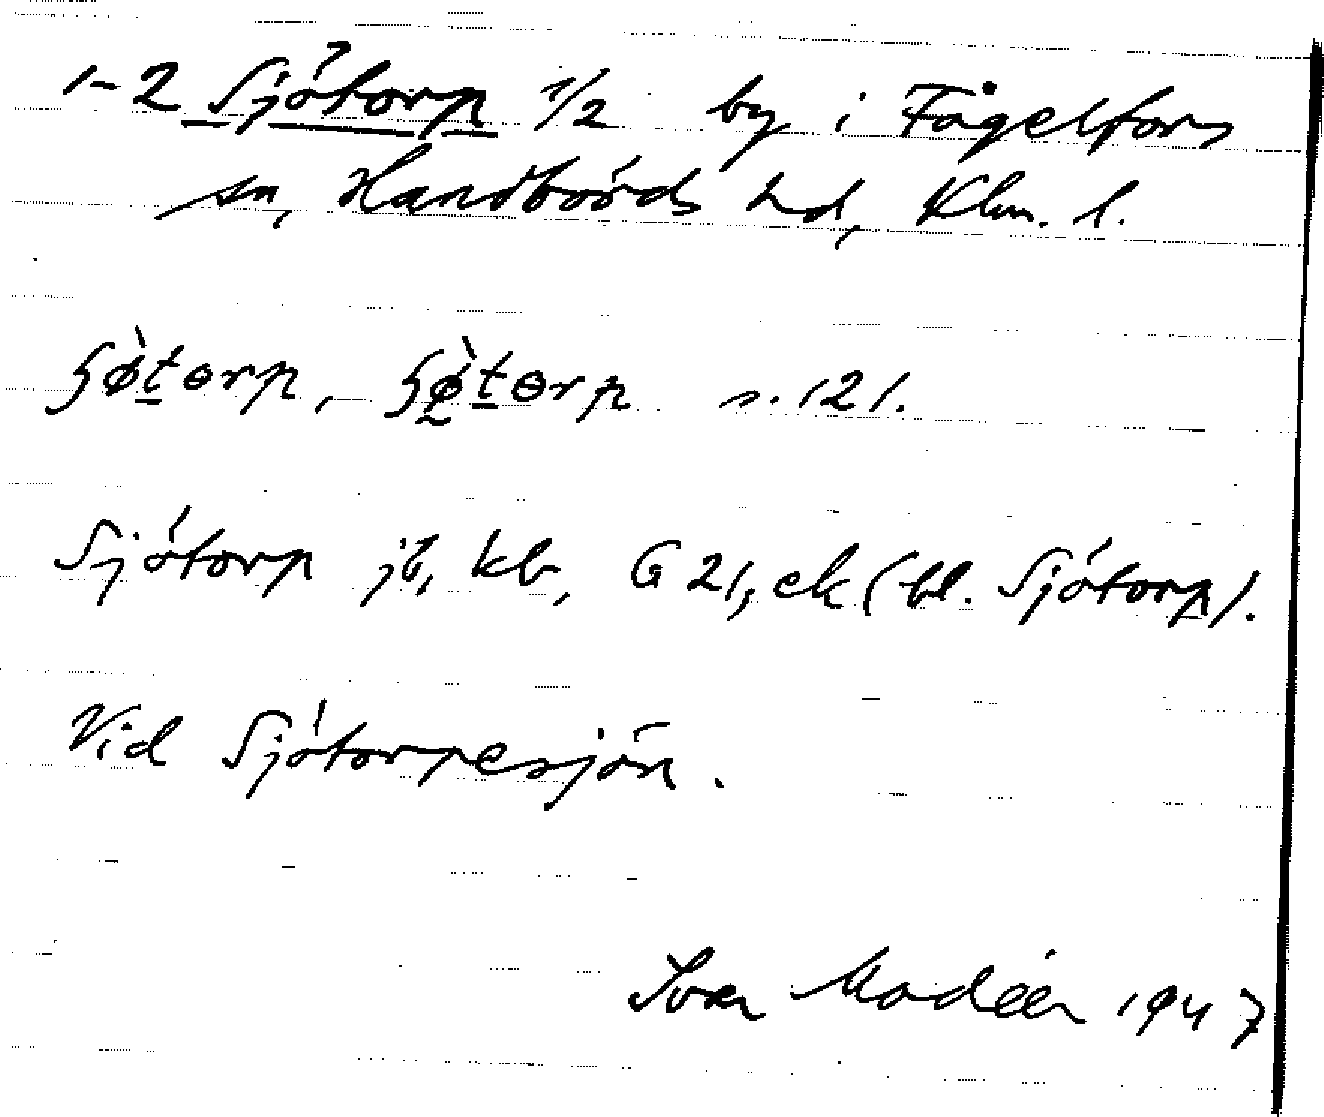 1-2 Sjötorp 1/2 by i Fågelfors
sn, Handbörds hd, Klm. l.
ʃø̀torp, ʃø̀tɵrp s. 121.
Sjötorp jb, kb, G 21, ek (bl. Sjötorp).
Vid Sjötorpesjön.
Ivar Modéer 1947